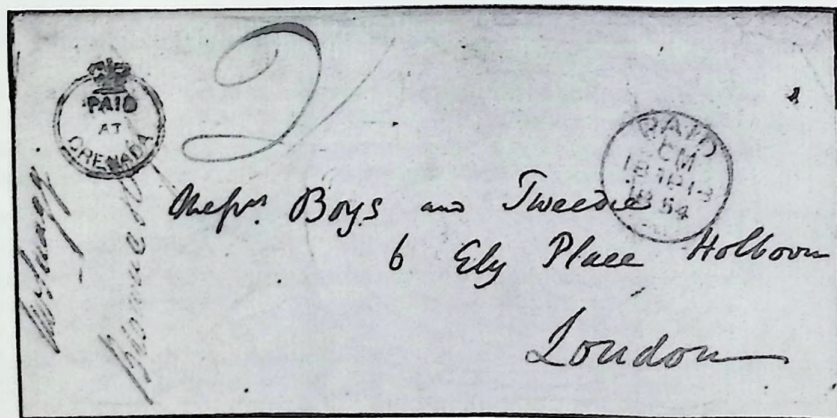 PAID
AT
GRENADA
2/
PAID
CM
18
1854
Messrs. Boys and Tweedie
6 Ely Place Holborn
London